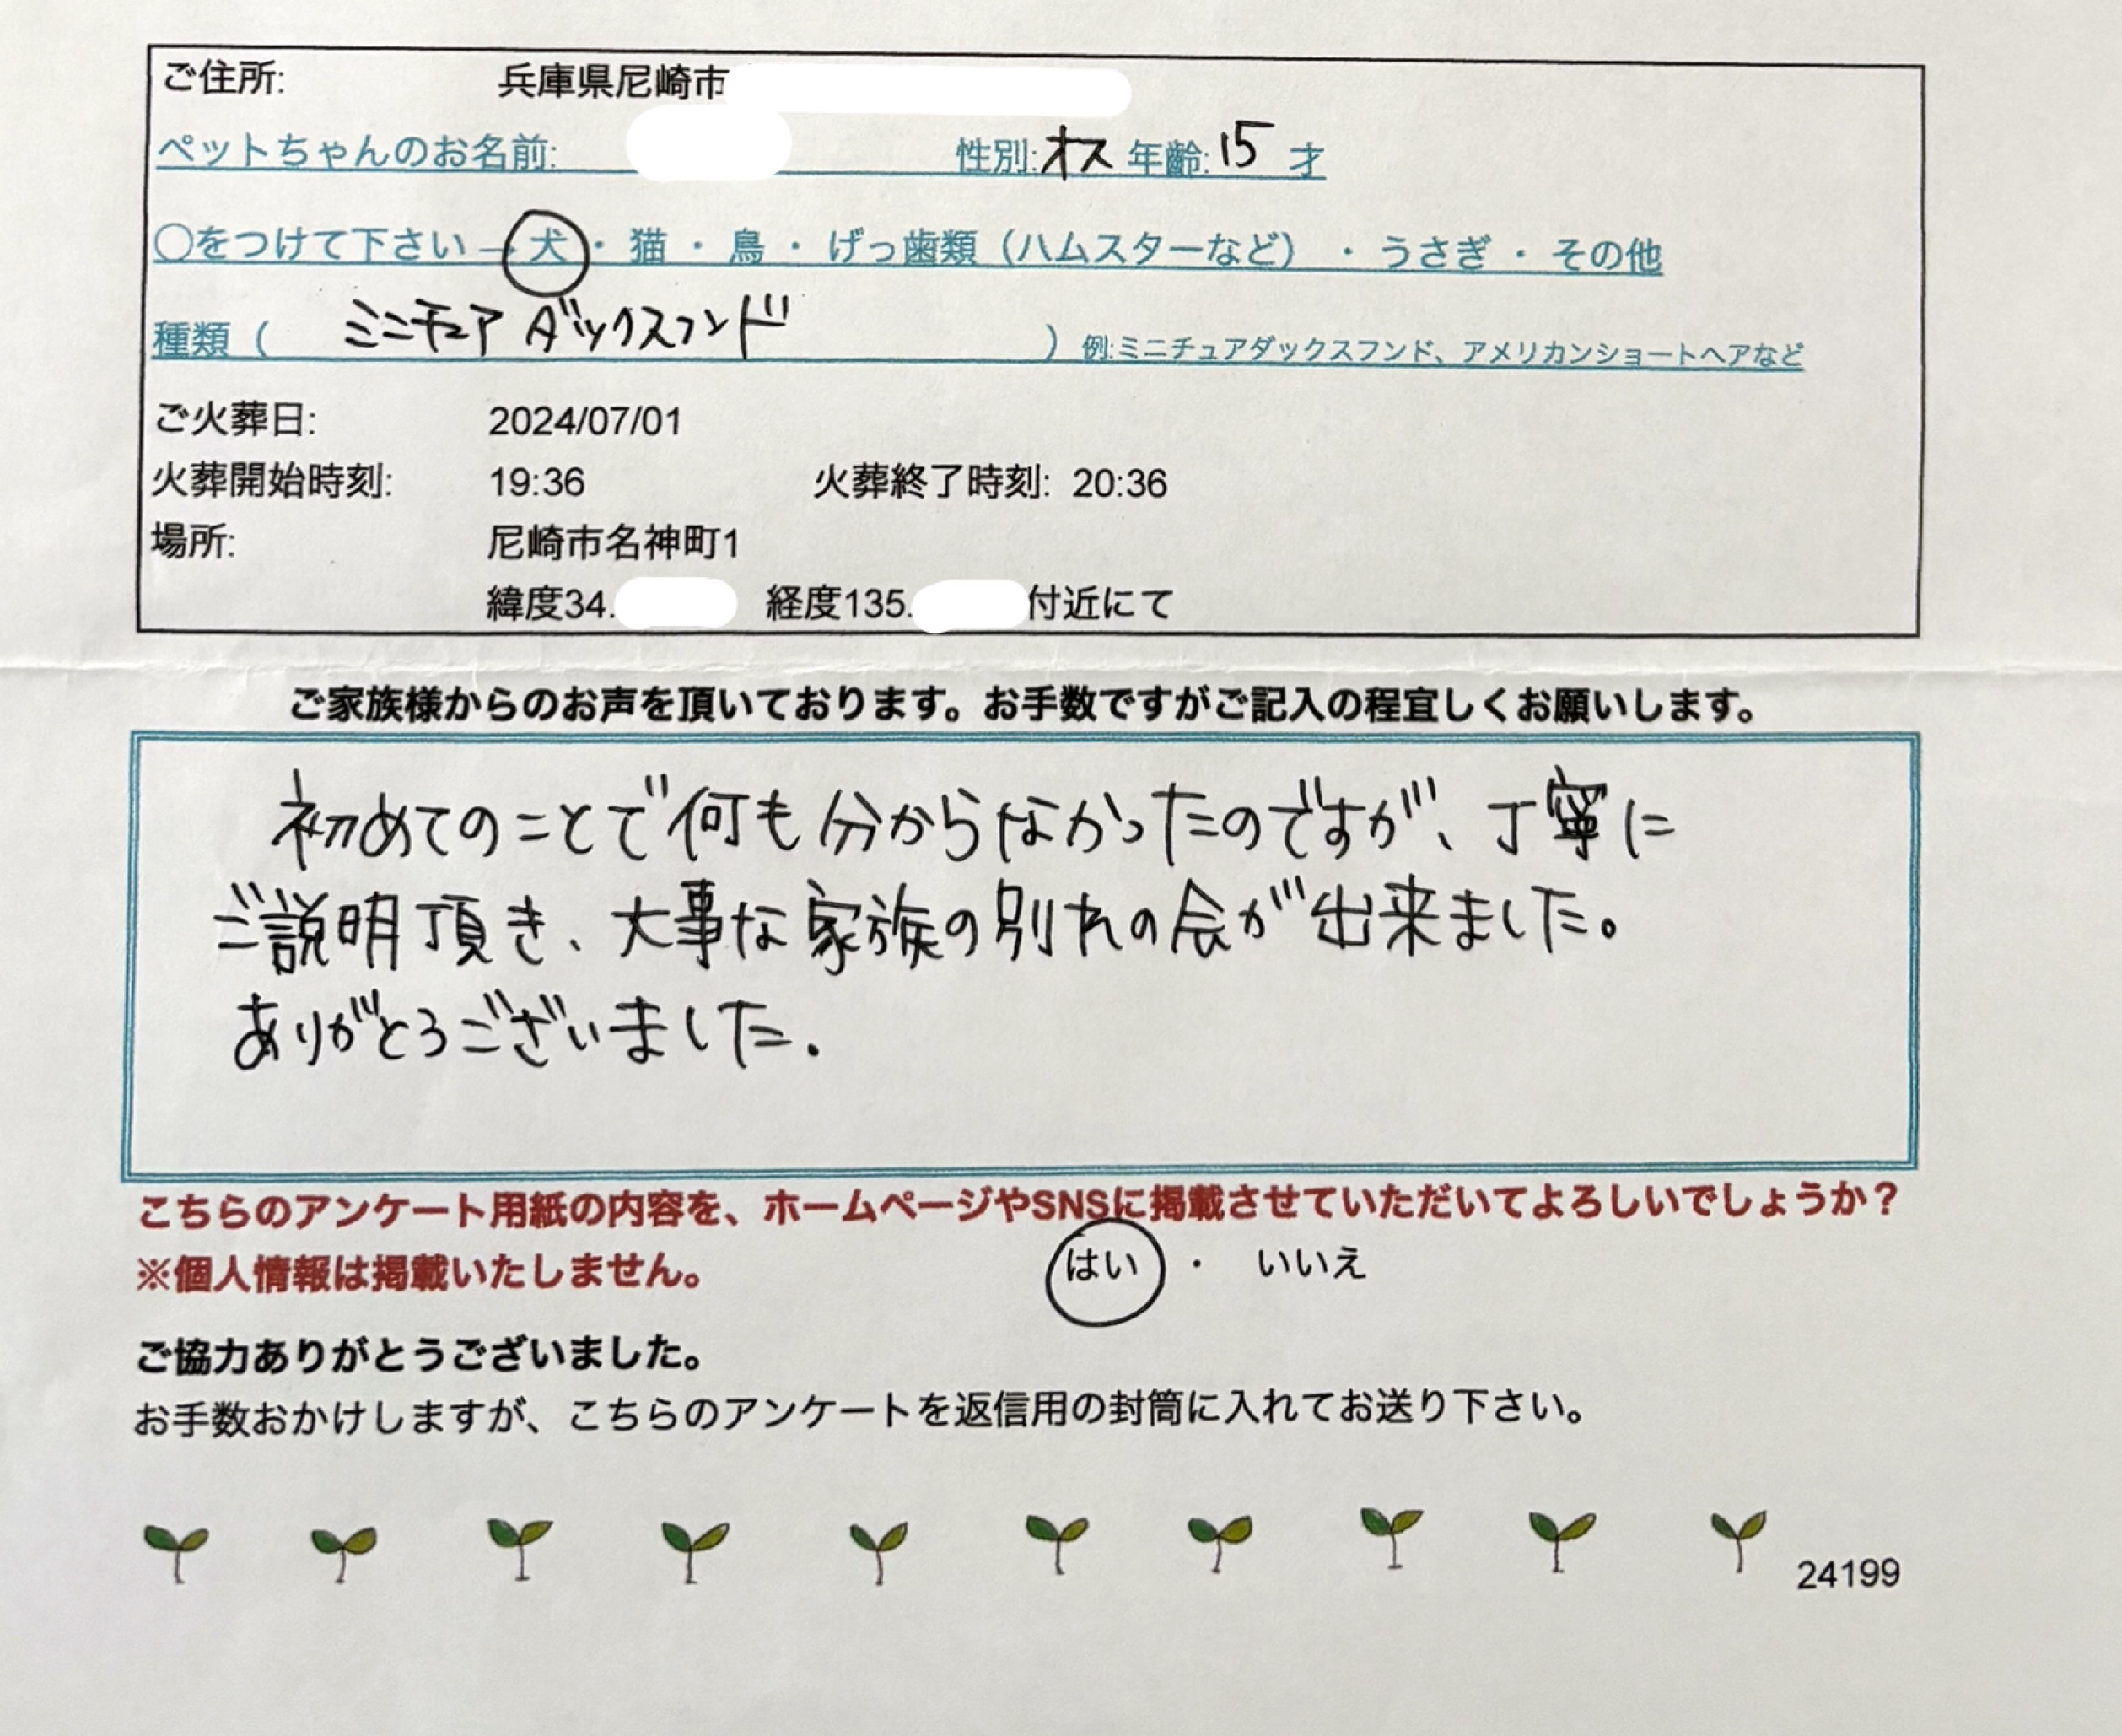 ご住所: 兵庫県尼崎市
ペットちゃんのお名前: 性別:オス 年齢:15 才
○をつけて下さい→ 犬 ・ 猫 ・ 鳥 ・ げっ歯類（ハムスターなど） ・ うさぎ ・ その他
種類（ ミニチュア ダックスフンド ）例:ミニチュアダックスフンド、アメリカンショートヘアなど
ご火葬日: 2024/07/01
火葬開始時刻: 19:36 火葬終了時刻: 20:36
場所: 尼崎市名神町1
緯度34. 経度135. 付近にて
ご家族様からのお声を頂いております。お手数ですがご記入の程宜しくお願いします。
初めてのことで何も分からなかったのですが、丁寧に
ご説明頂き、大事な家族の別れの会が出来ました。
ありがとうございました.
こちらのアンケート用紙の内容を、ホームページやSNSに掲載させていただいてよろしいでしょうか？
※個人情報は掲載いたしません。 はい ・ いいえ
ご協力ありがとうございました。
お手数おかけしますが、こちらのアンケートを返信用の封筒に入れてお送り下さい。
24199